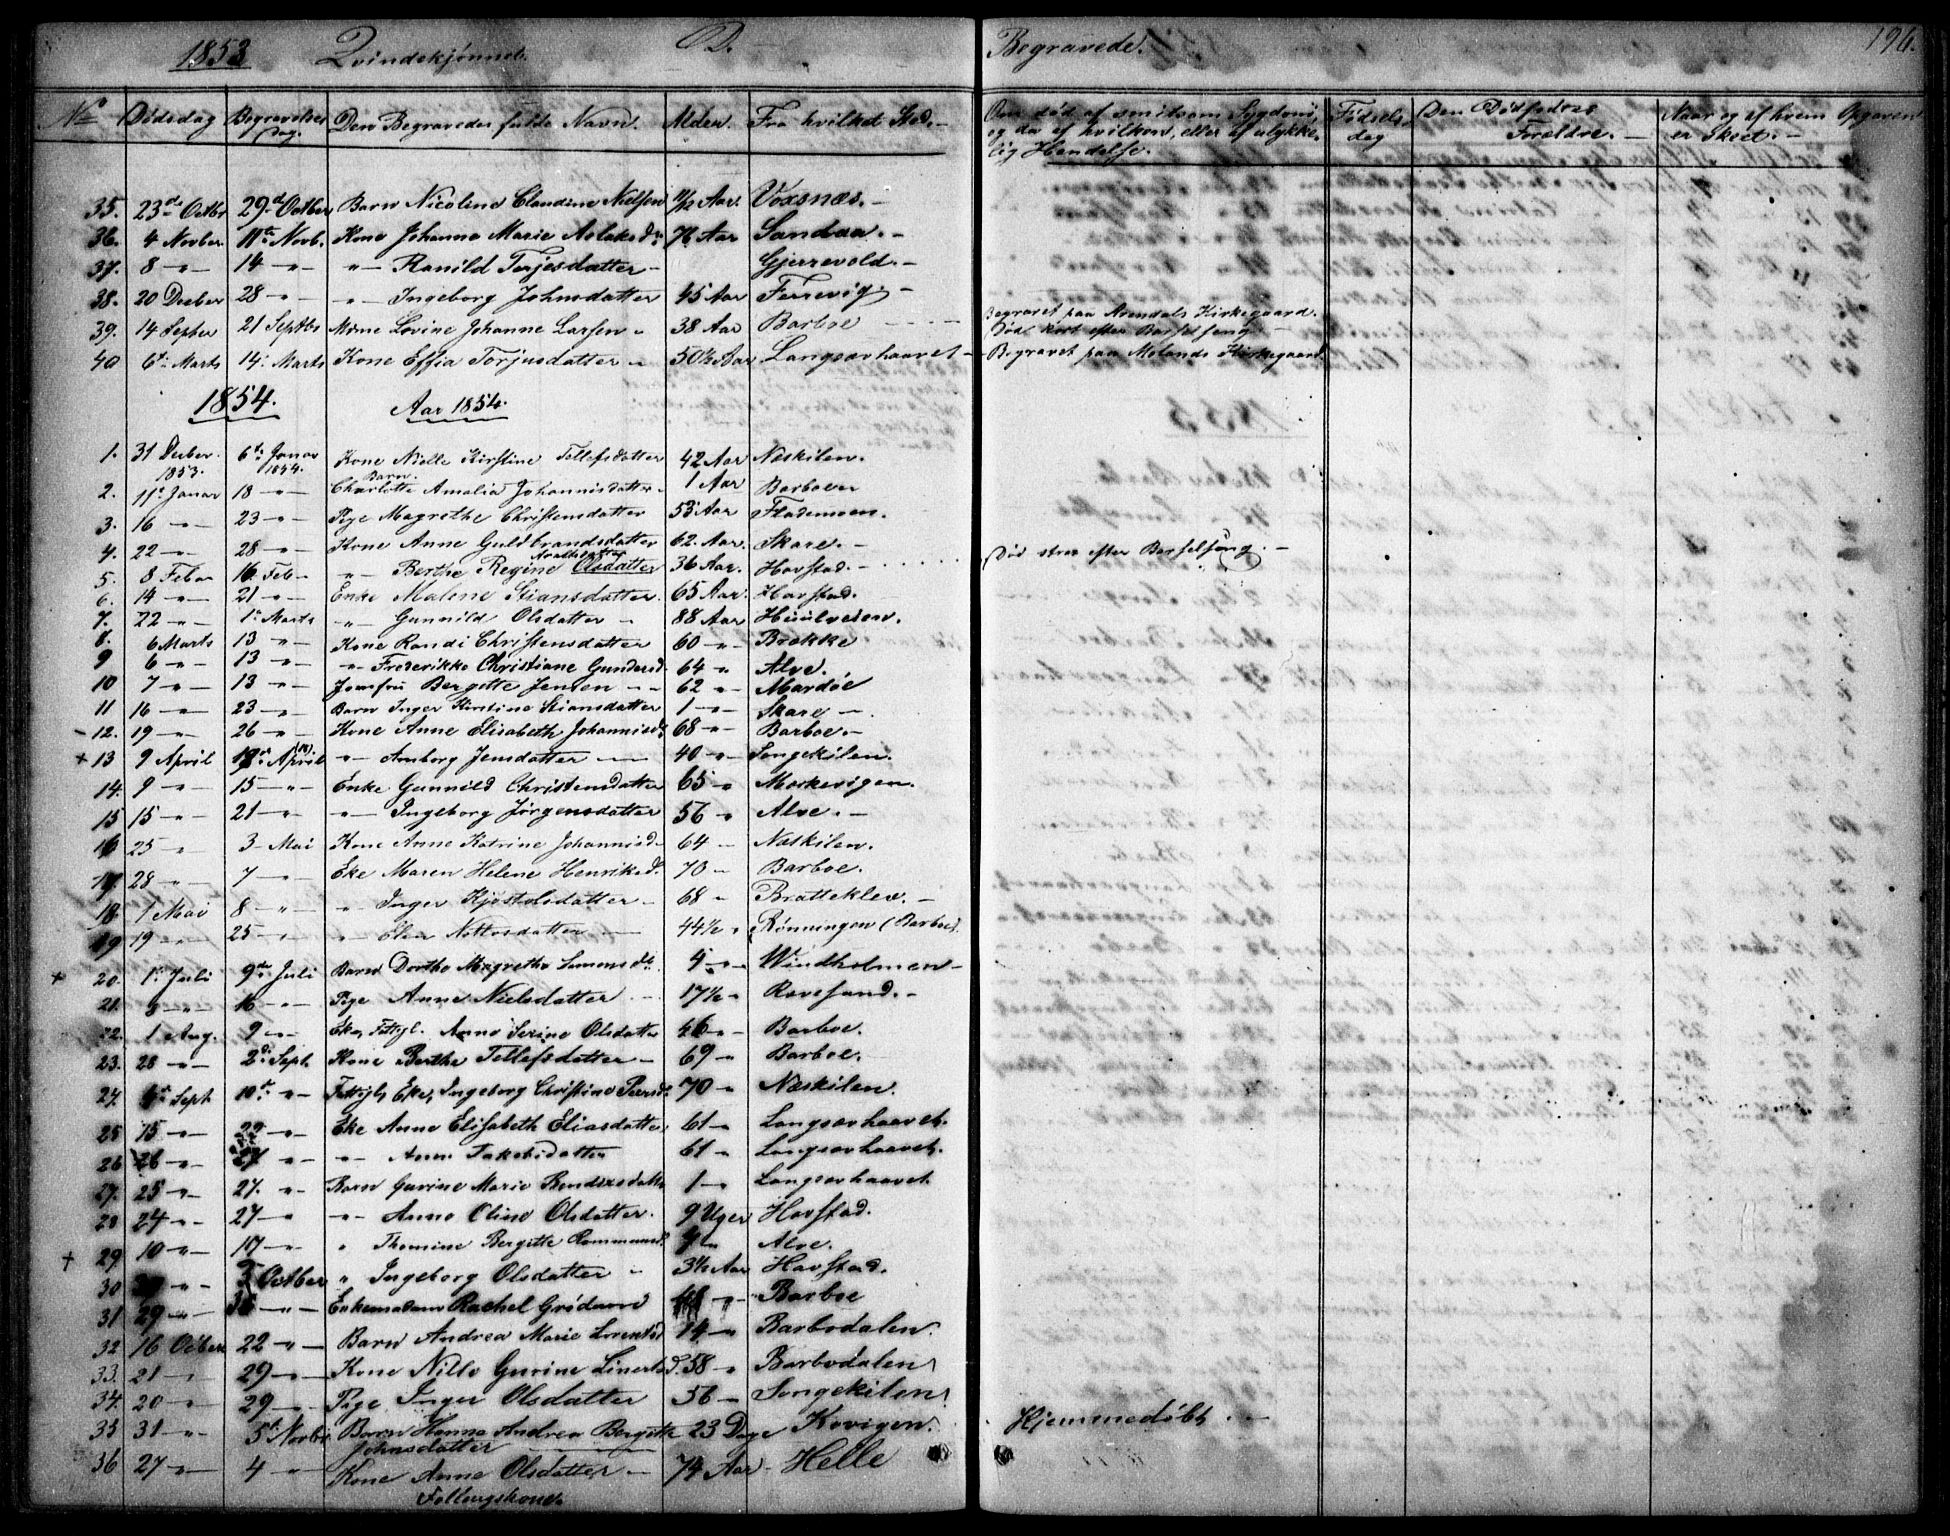 1853 Qvindekjønnet. D. Begravede. 196.
No Dødsdag Begravelses Dag. Den Begravedes fulde Navn. Alder. Fra hvilket Sted. Om død af smitsom Sygdom, og da af hvilken, eller af ulykkelig Hændelse. Fødsels dag Den Dødfødtes Forældre. Naar og af hvem Opgaven er Skeet.
35. 23d Octbr 29d Octber Barn Nicoline Claudine Nielsen 11/12 Aar. Voxsnæs.
36. 4 Novber 11te Novb. Kone Johanne Marie Aslaksd. 76 Aar Sandaa.
37. 8 " 14 " " Ranild Terjesdatter Gjerrevold.
38. 20 Decber 28 " " Ingeborg Johnsdatter 45 Aar Ferrevig
39. 14 Septer 21 Septbr Mme Lovine Johanne Larsen 38 Aar Barboe Begravet paa Arendals Kirkegaard. Død kort efter Barselseng.
40 6te Marts 14 Marts Kone Effia Torjusdatter 50½ Aar Langsævhaavet Begravet paa Molands Kirkegaard
1854. Aar 1854.
1. 31 Decber 1853. 6te Januar 1854. Kone Nielle Kirstine Tellefsdatter 42 Aar Næskilen.
2. 11te Januar 18 " Barn Charlotte Amalia Johannisdatter 1 Aar Barboen
3. 16 " 23 " Pige Magrethe Christensdatter 53 Aar Flademoen.
4. 22 " 28 " Kone Anne Guldbrandsdatter 62. Aar. Skare.
5. 8 Febr 16 Feb " Berthe Regine Olsdatter 36 Aar. Havstad. Død strax efter Barselseng.
6. 14 " 21 " Enke Malene Stiansdatter 65 Aar. Havstad.
7. 22 " 1te Marts " Gunnild Olsdatter 88 Aar Huulveien.
8. 6 Marts 13 " Kone Randi Christensdatter 60 " Brække
9 6 " 13 " " Frederikke Christiane Gundersd. 64 " Alve.
10 7 " 13 " Jomfru Bergitte Jensen 62 " Mardøe
11 16 " 23 " Barn Inger Kirstine Stiansdatter 1 " Skare
12. 19 " 26 " Kone Anne Elisabeth Johannisd. 68 " Barboe.
+ 13 9 April April " Anborg Jensdatter 40 " Songekilen.
14. 9 " 15 " Enke Gunnild Christensdatter 65 " Mærkevigen.
15 15 " 21 " " Ingeborg Jørgensdatter 56 " Alve.
16 25 " 3 Mai Kone Anne Katrine Johannisd. 64 " Næskilen.
17 28 " 7 " Eke Maren Helene Henriksd. 70 " Barboe.
18. 1 Mai 8 " " Inger Kjøstolsdatter 68 " Bratteklev.
19 19 " 25 " " Elen Nottosdatter 44½ " Rønningen (Barboe).
+ 20. 1te Juli 9de Juli Barn Dorthe Magrethe Simonsd. 4 " Windholmen
21. 9 " 16 " Pige Anne Nielsdatter 17½ " Ravesand.
22. 1 Aug. 9 " Eke, Fattigl. Anne Serine Olsdatter 46 " Barboe.
23. 28 " 2d Sept. Kone Berthe Tellefsdatter 69 " Barboe.
24. Sept 10de " Fattigl. Eke, Ingeborg Christine Peersd. 70 " Næskilen.
25 15 " 22 " Eke Anne Elisabeth Eliasdatter 61 " Langsævhaavet.
26 26 " " " Anne Jakobsdatter 61 " Langsævhaavet.
27. 25 " 27. " Barn Gurine Marie Bendixsdatter 1 " Langsævhaavet
28 24 " 27 " " Anne Oline Olsdatter. 9 Uger Havstad.
+ 29 10 " 17 " " Thomine Bergitte Alve.
30 " 5 Octber " Ingeborg Olsdatter 3½ Aar Havstad.
31 29 " " Enkemadame Rachel Grødum " Barboe
32 16 Octber 22 " Barn Andrea Marie Lorentsd 14 " Barbodalen.
33. 21 " 29 " Kone Nille Gurine Linertsd. 58 " Barbodalen
34. 20 " 29 " Pige Inger Olsdatter 56 " Songekilen
35 31 " 5te Novbr Barn Hanna Andrea Bergitte Johnsdatter 23 Dage Kovigen. Hjemmedøbt.
36 27 " 4 " Kone Anne Olsdatter 74 Aar Helle